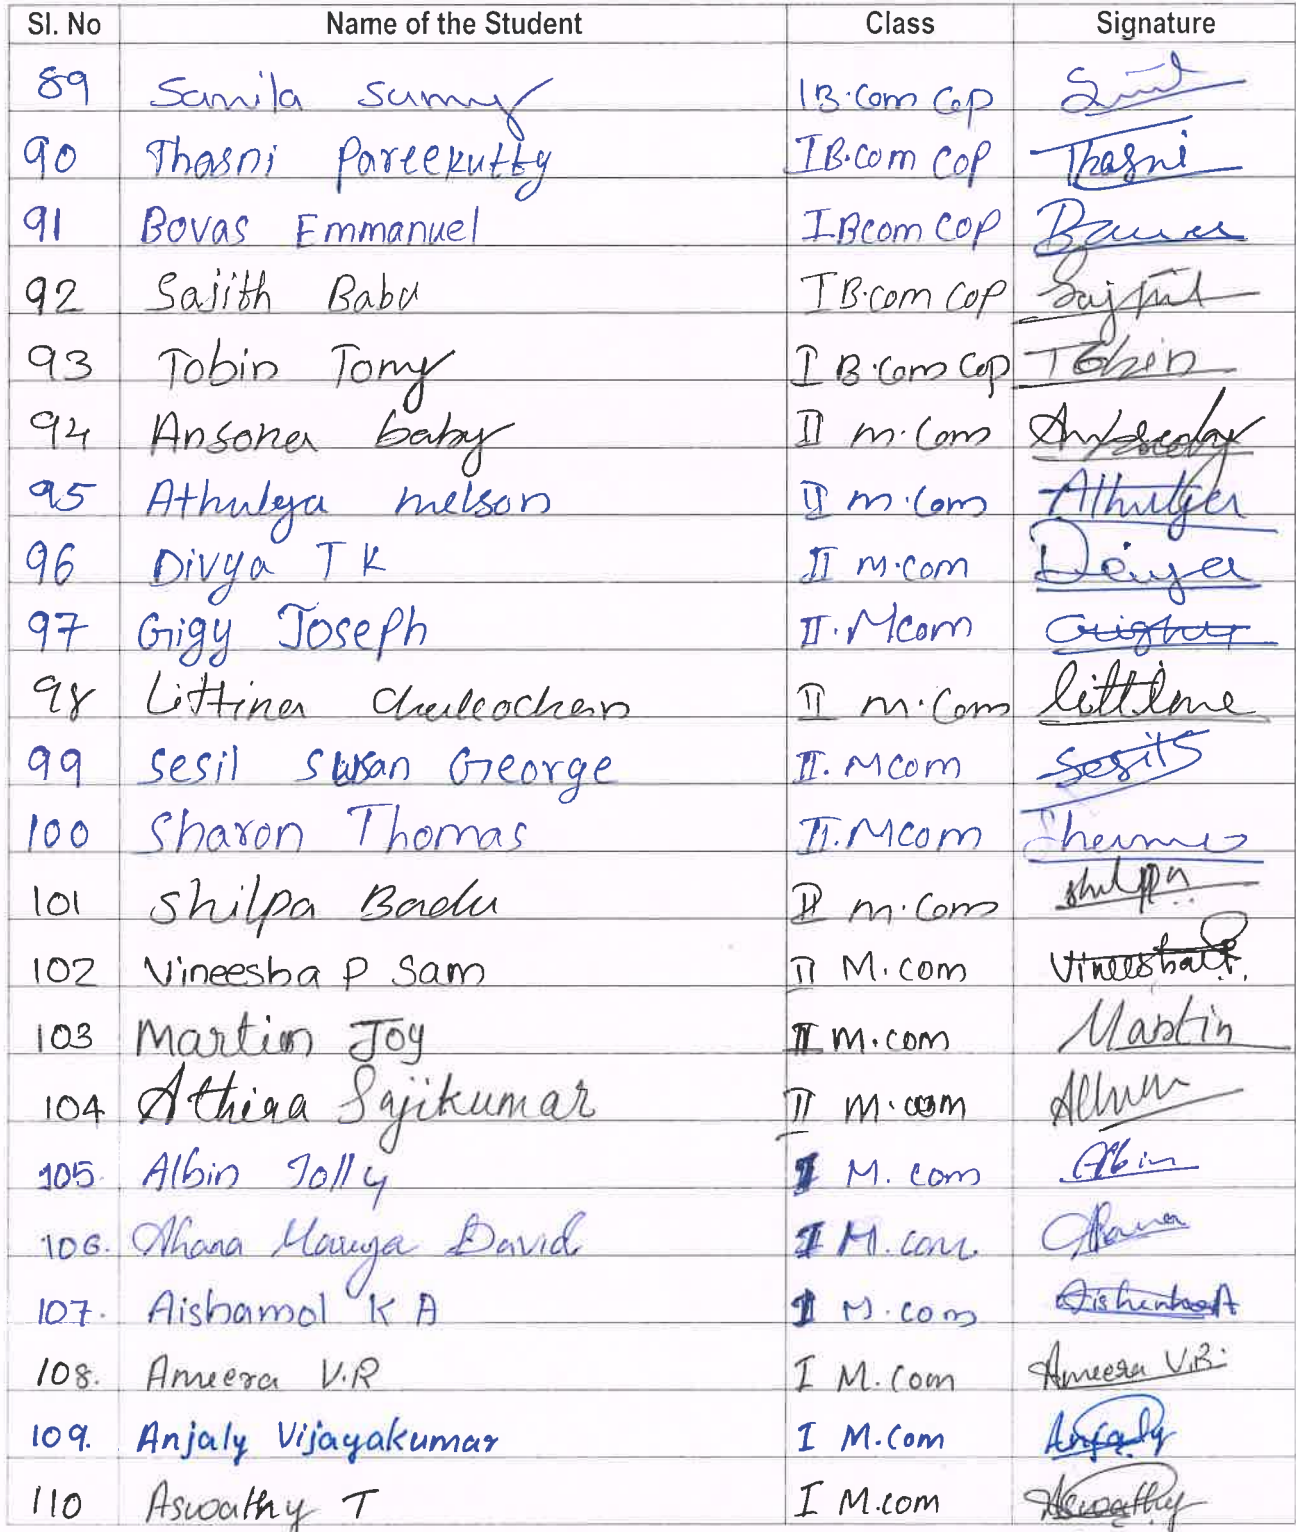 Sl. No Name of the Student Class Signature
89 Samila Sumy I B.Com Cop
90 Thasni Pareekutty I B.Com Cop Thasni
91 Bovas Emmanuel I Bcom Cop
92 Sajith Babu I B.com Cop Sajith
93 Tobin Tomy I B.Com Cop Tobin
94 Ansona baby II m.Com
95 Athulya melson II m.Com Athulya
96 Divya T K II M.com Divya
97 Gigy Joseph II. Mcom
98 Littina II m.Com
99 Sesil Susan George II. Mcom Sesil S
100 Sharon Thomas II. Mcom
101 Shilpa Badu II m.Com Shilpa
102 Vineesha P Sam II M.com Vineesha P.
103 Martin Joy II M.com Martin
104 Athira Sajikumar II M.com
105. Albin Jolly I M. com Albin
106. Ahana Mareya David I M. com Ahana
107. Aishamol K A I M. com
108. Ameera V.R I M. Com Ameera V.R.
109. Anjaly Vijayakumar I M.Com Anjaly
110 Aswathy T I M.com Aswathy